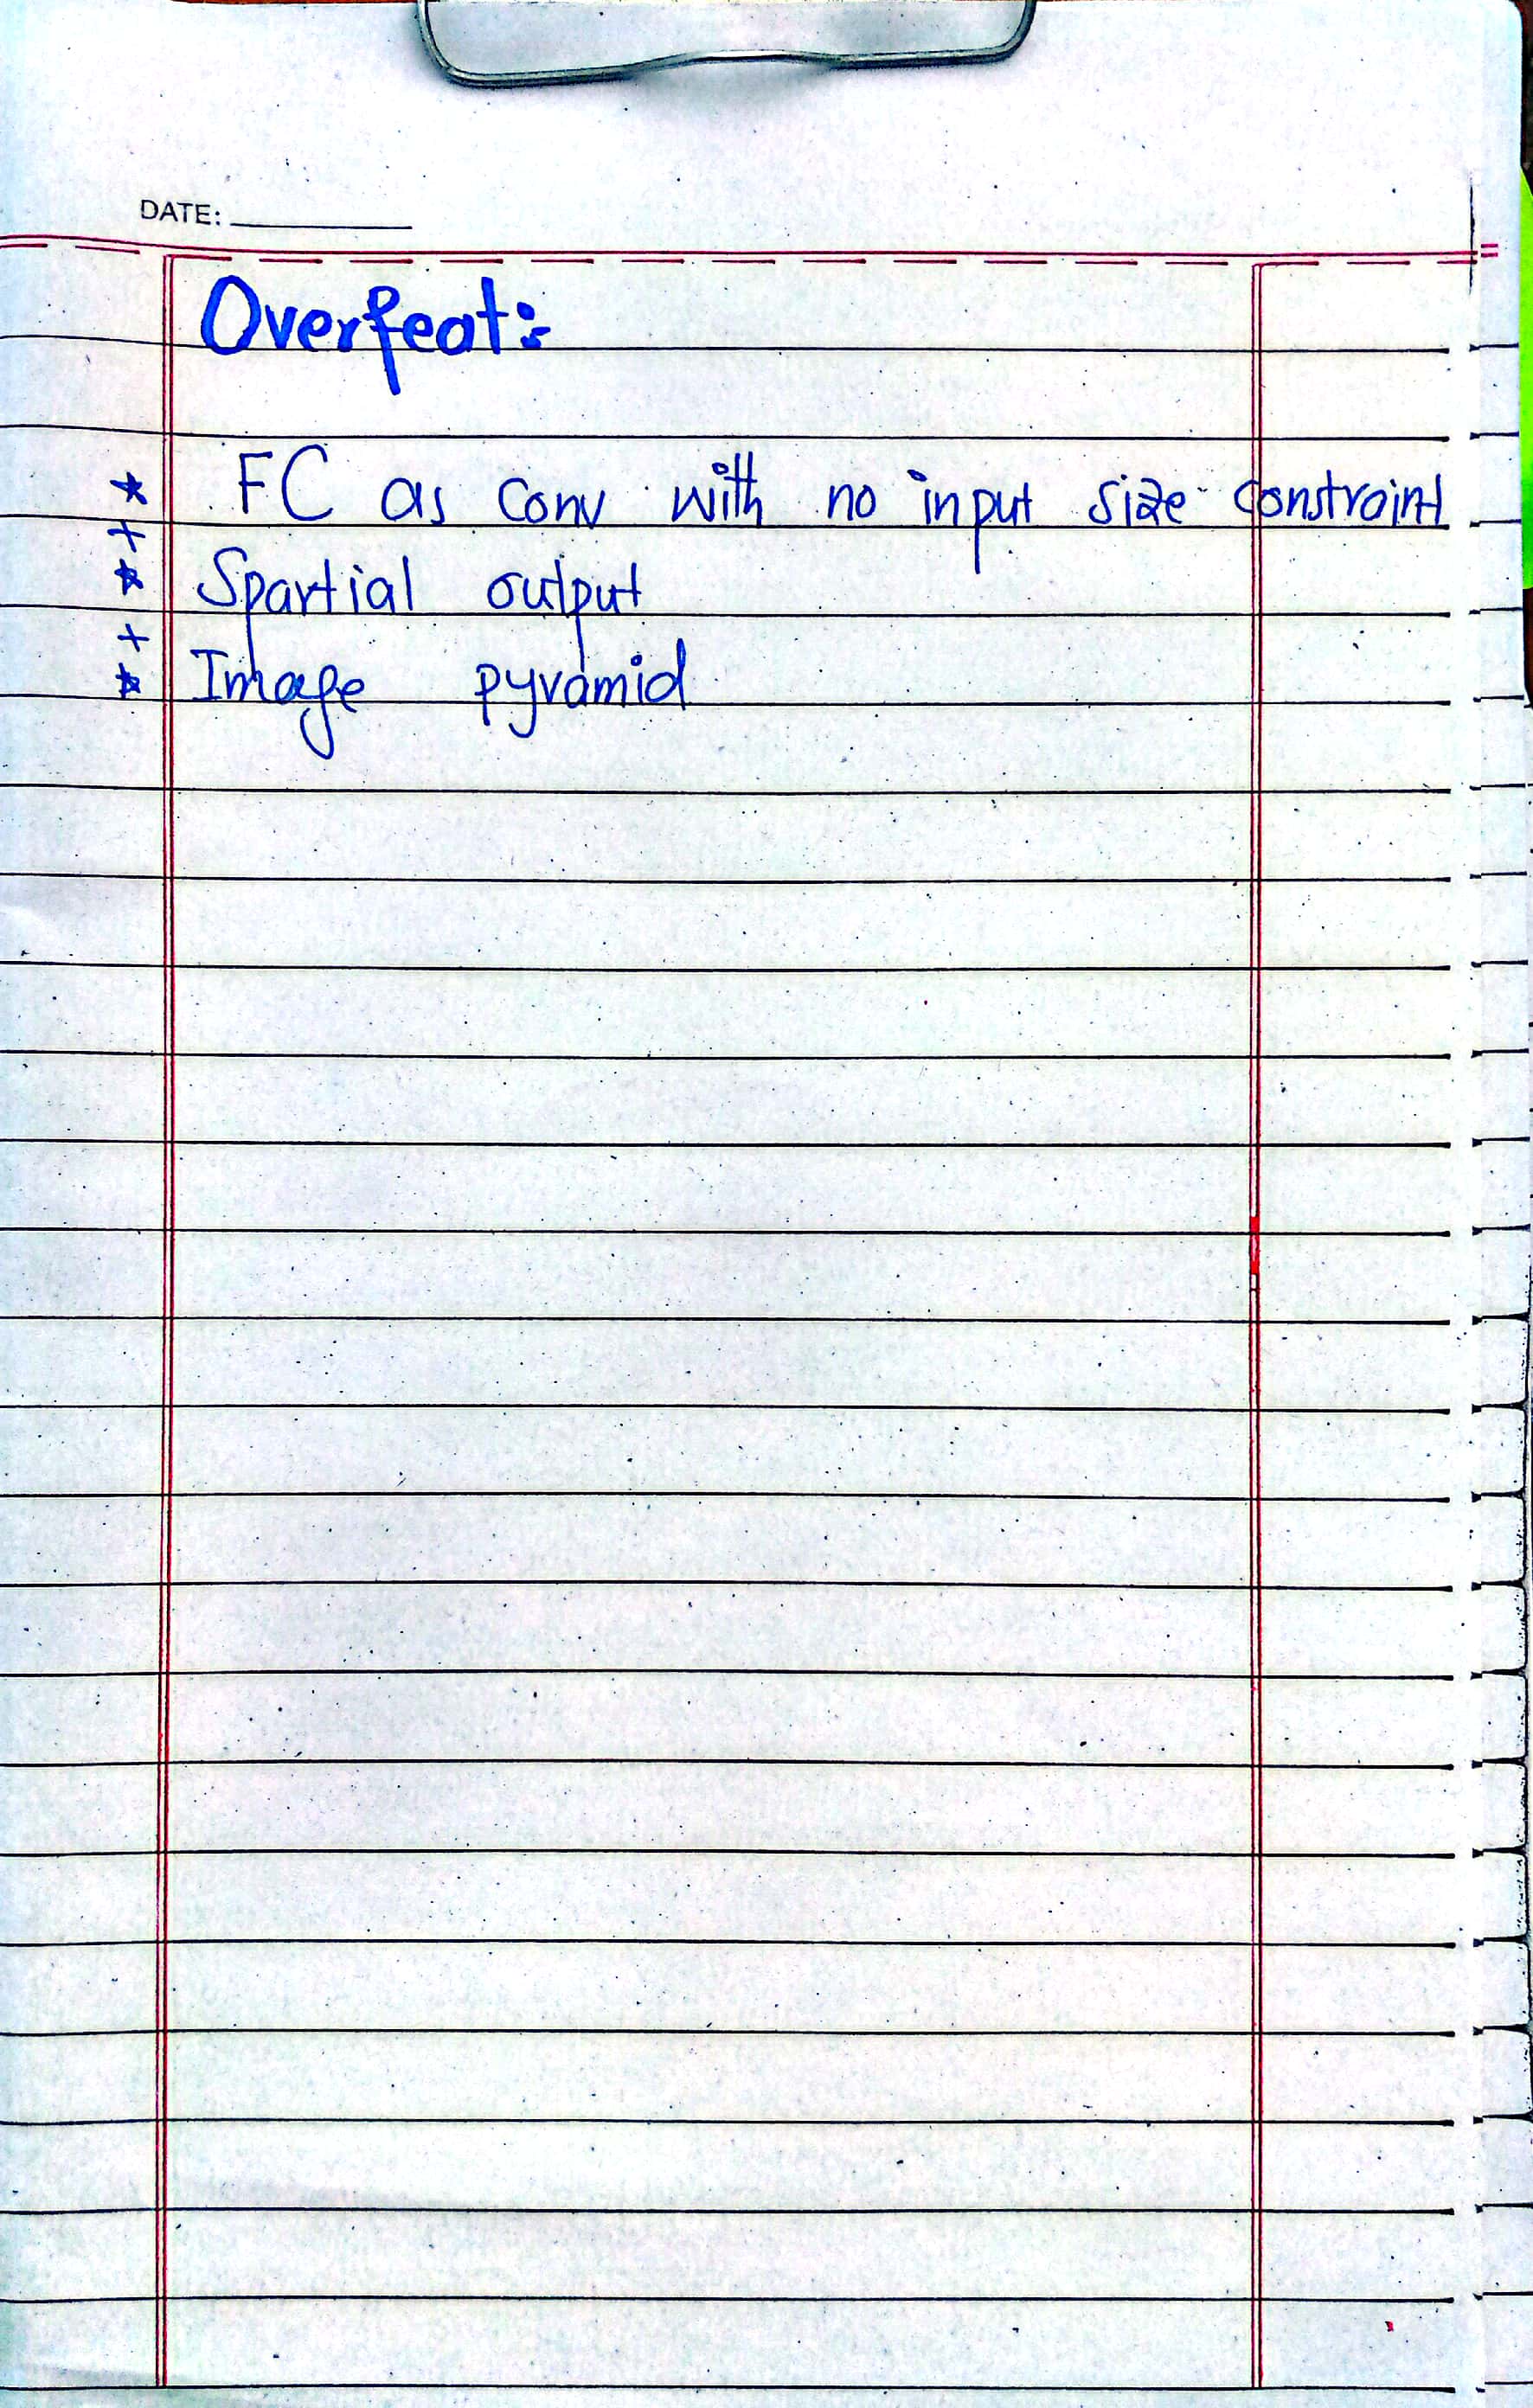 DATE:
Overfeat:
* FC as Conv with no input size constraint
+
* Spartial output
+
* Image pyramid